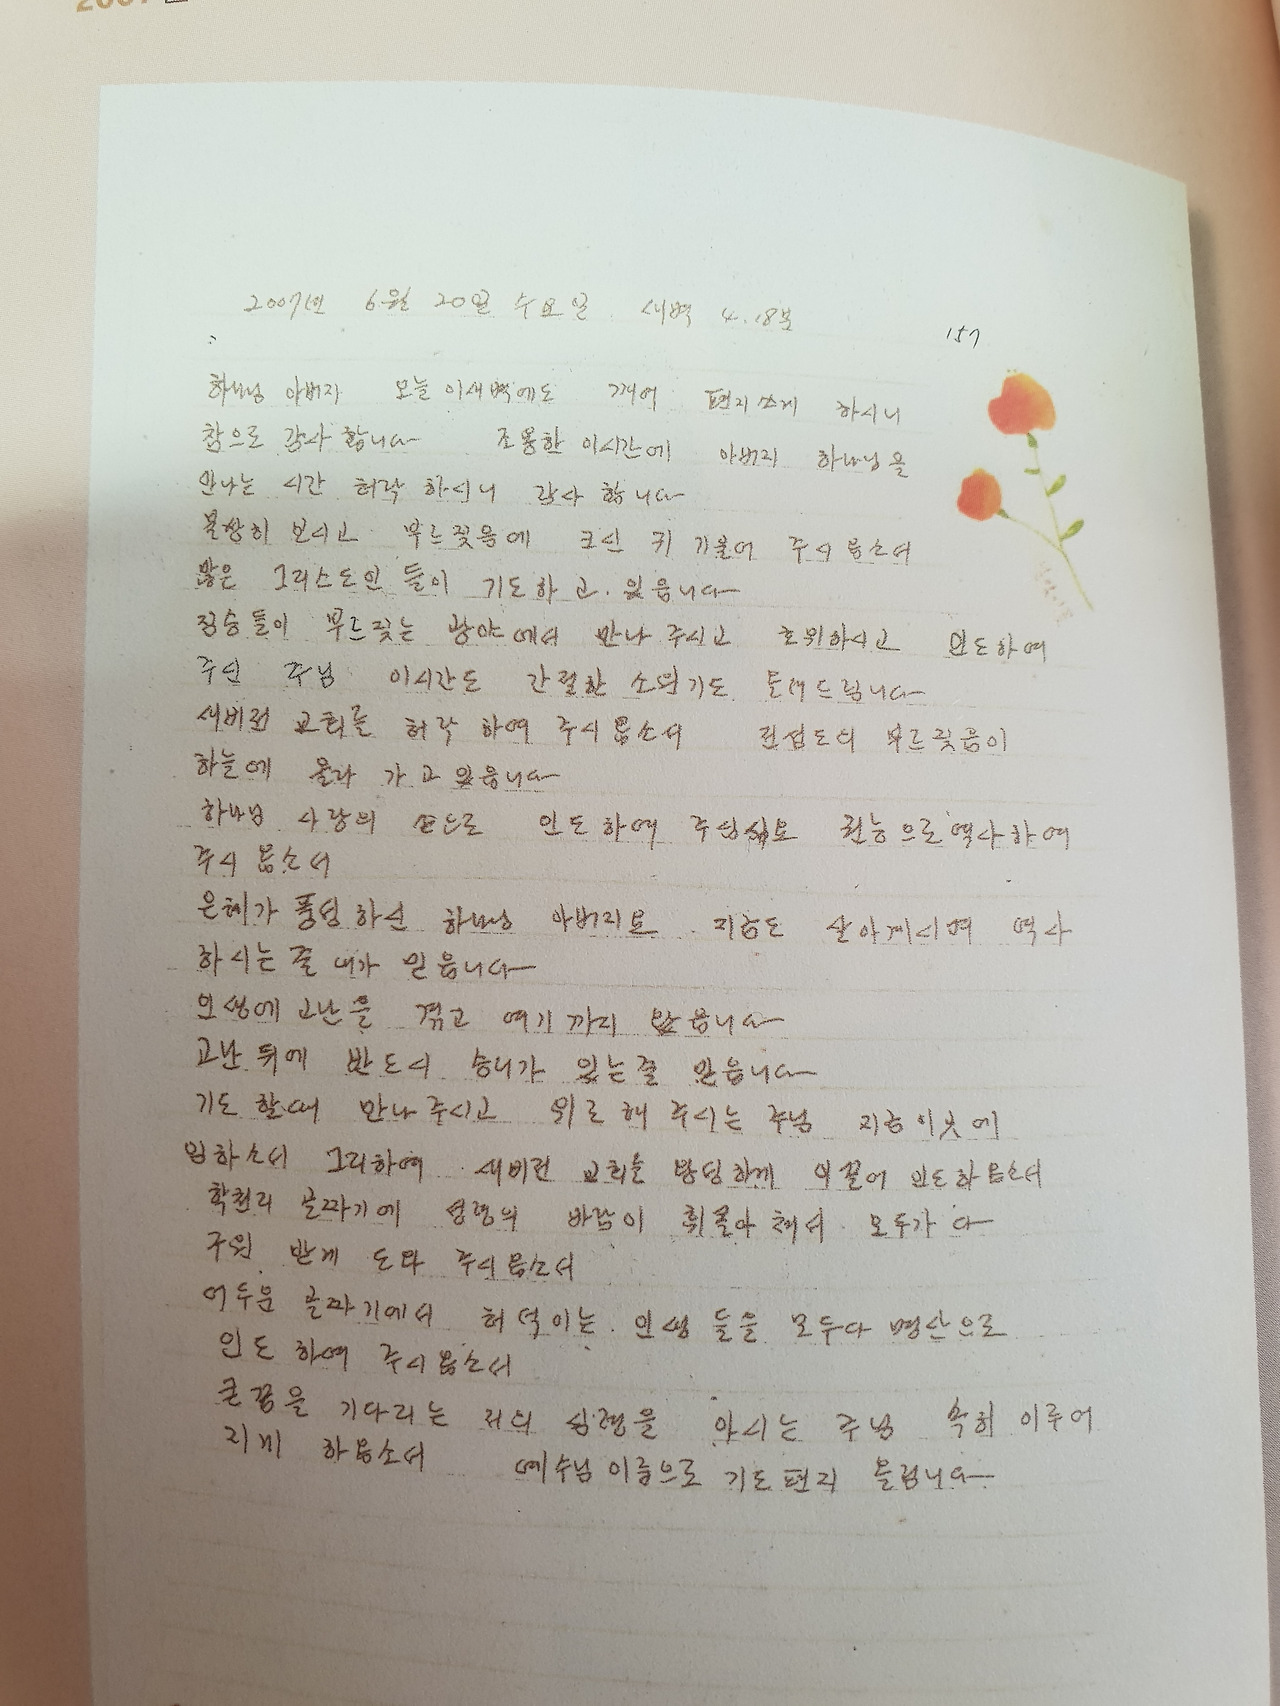 2007년
2007년 6월 20일 수요일 새벽 4.18분
157
하나님 아버지 오늘 이새벽에도 깨여 편지쓰게 하시니
참으로 감사 합니다 조용한 이시간에 아버지 하나님을
만나는 시간 허락 하시니 감사 합니다
불쌍히 보시고 부르짖음에 크신 귀 기울어 주시옵소서
많은 그리스도인 들이 기도하고. 있읍니다
짐승들이 부르짖는 광야에서 만나 주시고 호위하시고 인도하여
주신 주님 이시간도 간절한 소원기도 올려드립니다
새비전 교회를 허락 하여 주시옵소서 전성도의 부르짖음이
하늘에 올라 가고 있읍니다
하나님 사랑의 손으로 인도하여 주십시요 권능으로 역사하여
주시 옵소서
은혜가 풍성하신 하나님 아버지요 지금도 살아계시며 역사
하시는줄 내가 믿읍니다
인생에 고난을 겪고 여기까지 왔읍니다
고난뒤에 반드시 승리가 있는줄 믿읍니다
기도 할때 만나주시고 위로해 주시는 주님 지금이곳에
임하소서 그리하여 새비전 교회를 왕성하게 이끌어 인도하옵소서
학천리 골짜기에 성령의 바람이 휘몰아 쳐서 모두가 다
구원 받게 도와 주시옵소서
어두운 골짜기에서 허덕이는 인생 들을 모두다 명산으로
인도 하여 주시옵소서
큰꿈을 기다리는 저의 심령을 아시는 주님 속히 이루어
지게 하옵소서 예수님 이름으로 기도편지 올립니다